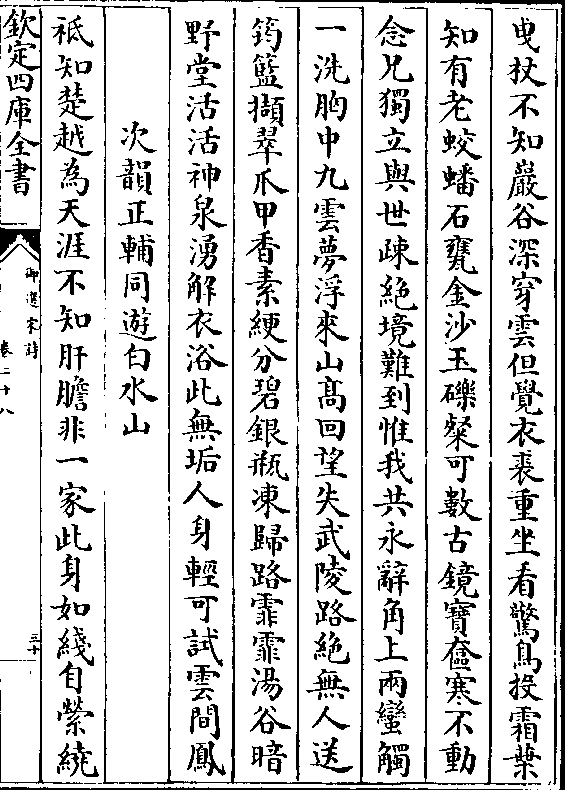 曳杖不知巖谷深穿雲但覺衣裘重坐看驚鳥投霜葉
知有老蛟蟠石甕金沙玉礫粲可數古鏡寶奩寒不動
念兄獨立與世疎絶境難到惟我共永辭角上兩蠻觸
一洗胸中九雲夢浮來山髙回望失武陵路絶無人送
筠籃擷翠爪甲香素綆分碧銀瓶凍歸路霏霏湯谷暗
野堂活活神泉湧解衣浴此無垢人身輕可試雲間鳳
次韻正輔同遊白水山
祗知楚越為天涯不知肝膽非一家此身如綫自縈繞
欽定四庫全書
御選宋詩
卷二十八
三十